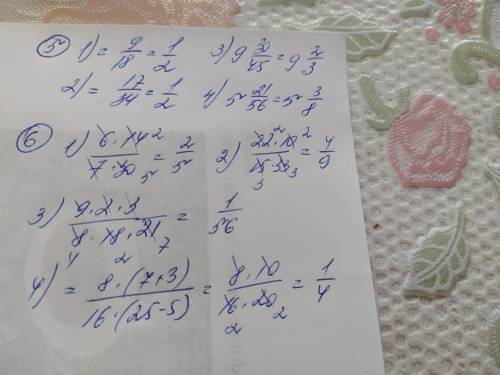 5 1) = 9/18 = 1/2 3) 9 30/45 = 9 2/3
2) = 17/34 = 1/2 4) 5 21/56 = 5 3/8
6 1) 6·14 2 / 7·30 5 = 2/5 2) 22 2 ·10 2 / 15 3 ·33 3 = 4/9
3) 9·2·3 / 8 4 ·18 2 ·21 7 = 1/56
4) = 8·(7+3) / 16·(25-5) = 8·10 / 16 2 ·20 2 = 1/4